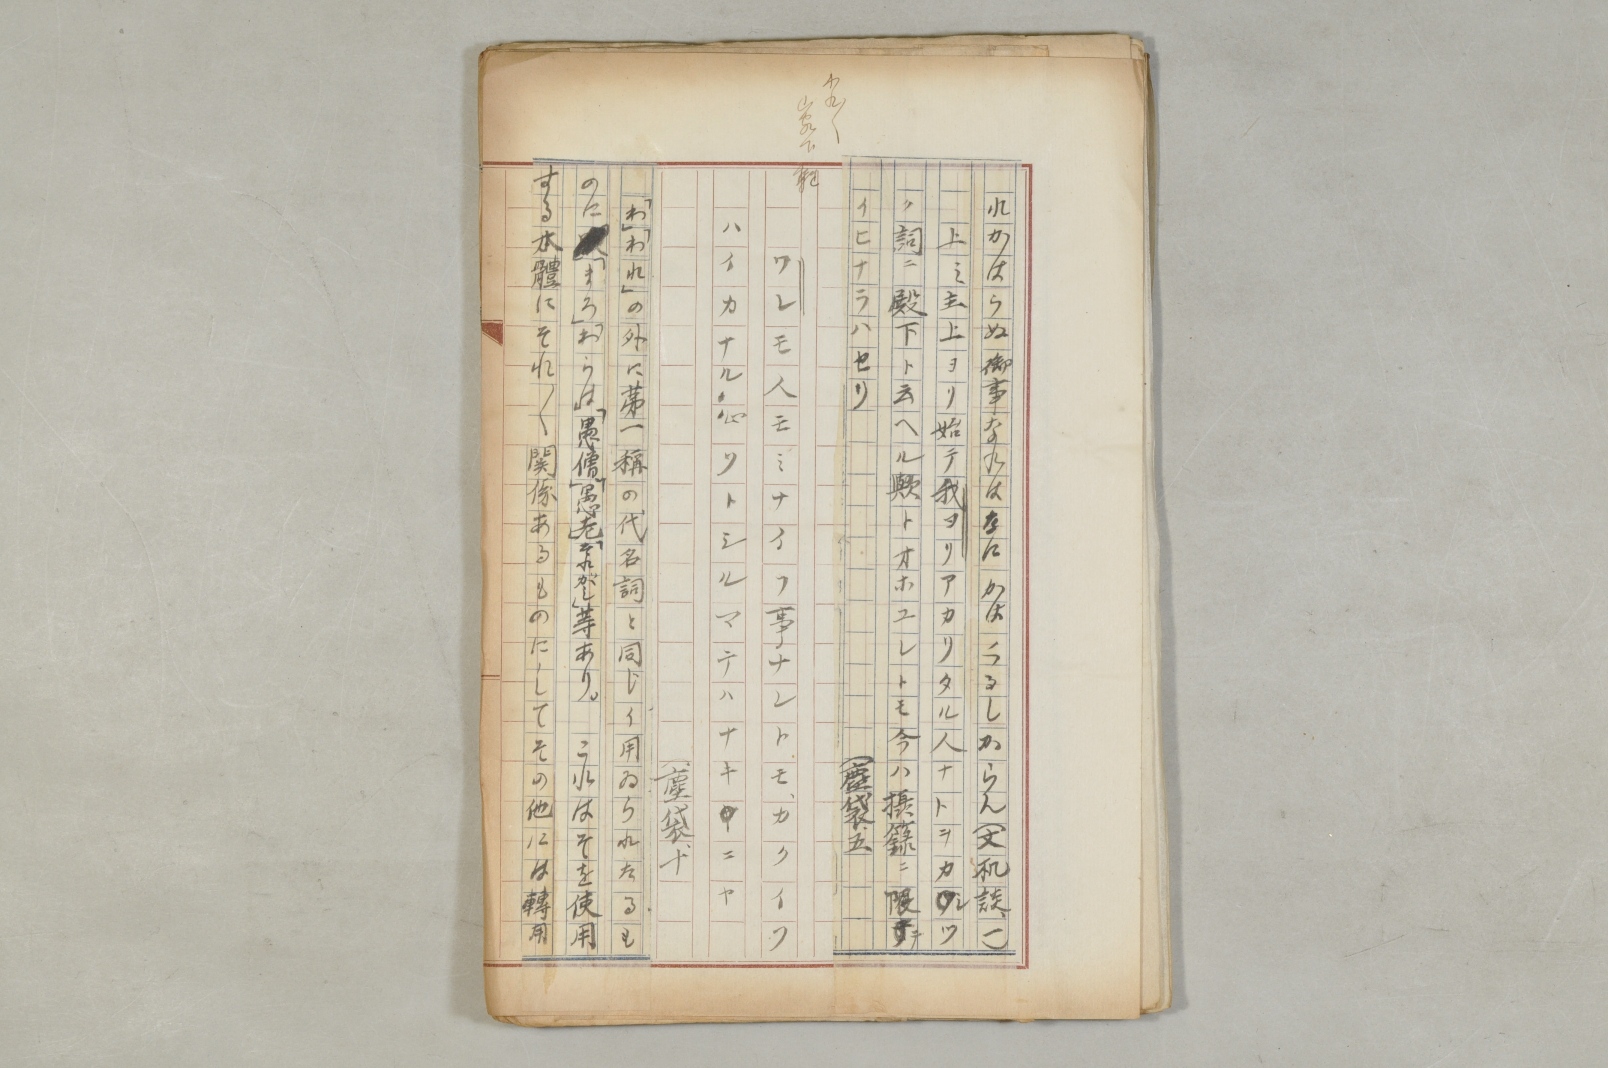 れかはらぬ御事なれはなにかはくるしからん(文机談、一)
上ミ主上ヨリ始テ我ヨリアカリタル人ナトヲカシツ
ク詞ニ殿下ト云ヘル歟トオホユレトモ今ハ摂籙ニ限テ
イヒナラハセリ
(塵袋、五)
ワレモ人モミナイフ事ナレトモ、カクイフ
ハイカナル心ソトシルマテハナキニヤ
(塵袋、十)
「わ」「われ」の外に第一稱の代名詞と同じく用ゐられたるも
のに「まろ」「わらは」「愚僧」「愚老」「それがし」等あり。 これはそを使用
する本體にそれ〳〵関係あるものにしてその他には轉用